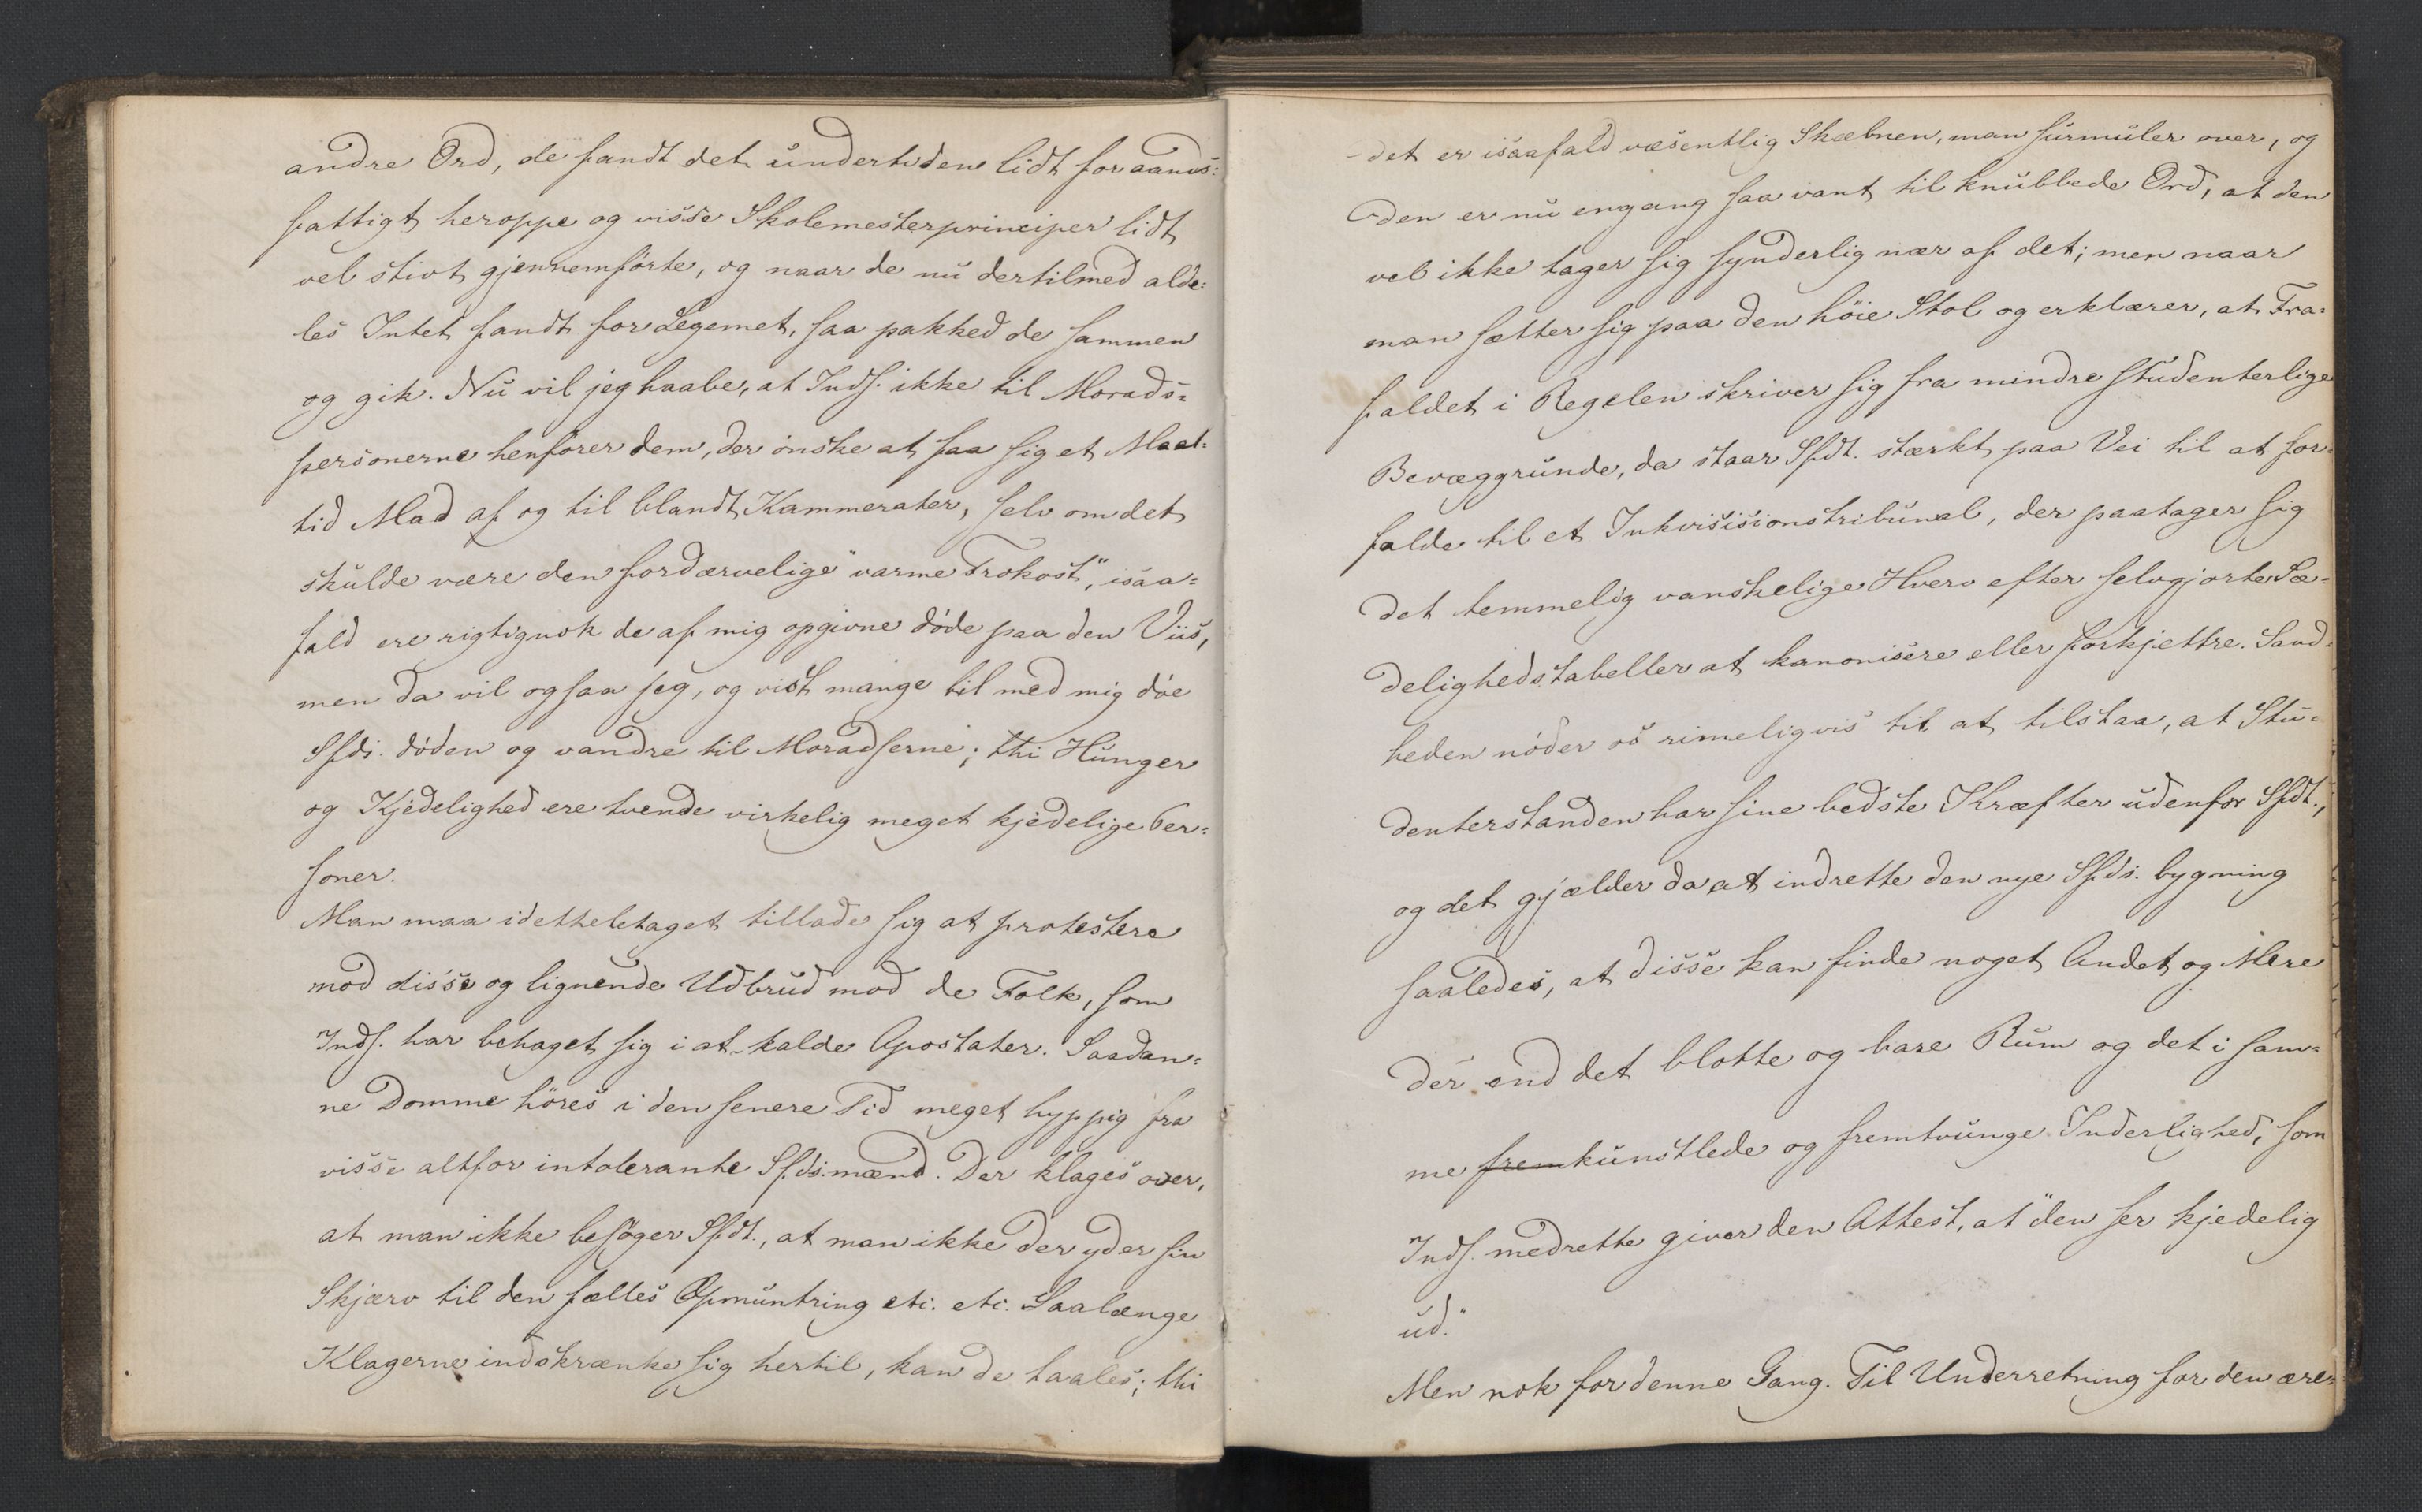 andre Ord, de fandt det undertiden lidt for aands=
fattigt heroppe og visse Skolemesterprinciper lidt
vel stivt gjennemførte, og naar de nu dertilmed alde=
les Intet fandt for Legemet, saa pakked de sammen
og gik. Nu vil jeg haabe, at Inds. ikke til Morads=
personerne henfører dem, der ønske at faa sig et Maal=
tid Mad af og til blandt Kammerater, selv om det
skulde være den fordærvelige "varme Frokost", isaa=
fald ere rigtignok de af mig opgivne døde paa den Viis,
men da vil ogsaa jeg, og vist mange til med mig døe
Sfds. døden og vandre til Moradserne; thi Hunger
og Kjedelighed ere tvende virkelig meget kjedelige Per=
soner.
Man maa idetheletaget tillade sig at protestere
mod disse og lignende Udbrud mod de Folk, som
Inds. har behaget sig i at kalde Apostater. Saadan=
ne Domme høres i den senere Tid meget hyppig fra
visse altfor intolerante Sfds.mænd. Der klages over,
at man ikke besøger Sfdt., at man ikke der yder sin
Skjærv til den fælles Opmuntring etc. etc. Saalænge
Klagerne indskrænke sig hertil, kan de taales; thi
det er isaafald væsentlig Skæbnen, man surmuler over, og
den er nu engang saa vant til knubbede Ord, at den
vel ikke tager sig synderlig nær af det; men naar
man sætter sig paa den høie Stol og erklærer, at Fra=
faldet i Regelen skriver sig fra mindre studenterlige
Bevæggrunde, da staar Sfdt. stærkt paa Vei til at for=
falde til et Inkvisisionstribunal, der paatager sig
det temmelig vanskelige Hverv efter selvgjorte Sæ=
delighedstabeller at kanonisere eller forkjettre. Sand=
heden nøder os rimeligvis til at tilstaa, at Stu=
denterstanden har sine bedste Kræfter udenfor Sfdt.,
og det gjælder da at indrette den nye Sfds. bygning
saaledes, at disse kan finde noget Andet og Mere
der end det blotte og bare Rum og det i sam=
me fremkunstlede og fremtvunge Inderlighed, som
Inds. medrette giver den Attest, at "den ser kjedelig
ud."
Men nok for denne Gang. Til Underretning for den ære=